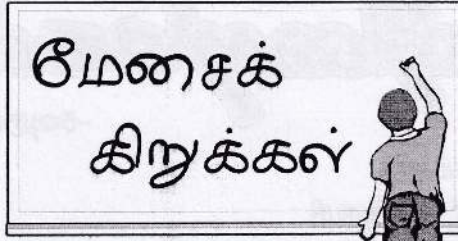 மேசைக்
கிறுக்கள்